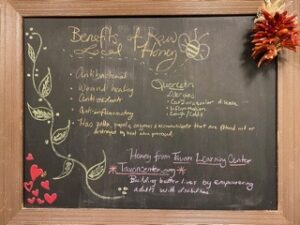 Benefits of Raw
Local Honey
• Antibacterial
• Wound healing
• Antioxidant
• Antiinflammatory
• Has pollen, enzymes & micronutrients that are filtered out or
destroyed by heat when processed
Quercetin
• Cardiovascular disease
• Inflammation
Honey from Tavon Learning Center
Tavoncenter.org
Building better lives by empowering
adults with disabilities